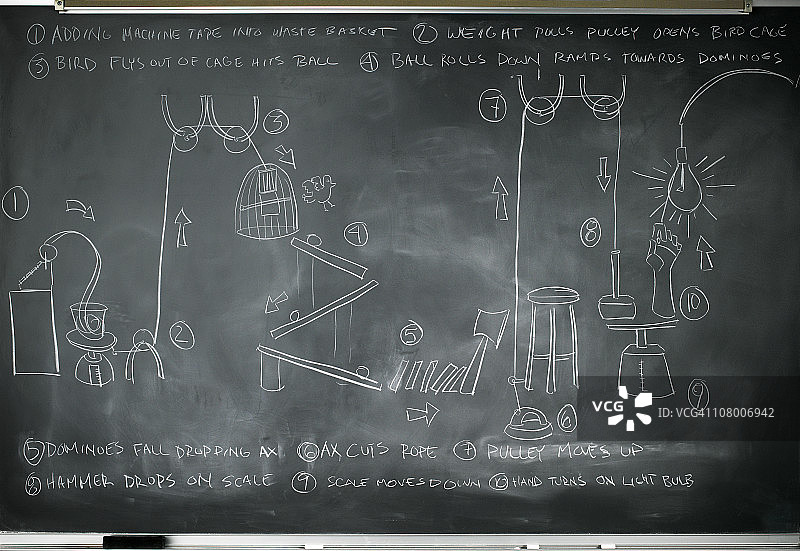 ① ADDING MACHINE TAPE INTO WASTE BASKET ② WEIGHT PULLS PULLEY OPENS BIRD CAGE
③ BIRD FLYS OUT OF CAGE HITS BALL ④ BALL ROLLS DOWN RAMPS TOWARDS DOMINOES
⑦
③
①
④
⑧
⑩
②
⑤
⑨
⑥
VCG
VCG ID: VCG41108006942
⑤ DOMINOES FALL DROPPING AX ⑥ AX CUTS ROPE ⑦ PULLEY MOVES UP
⑧ HAMMER DROPS ON SCALE ⑨ SCALE MOVES DOWN ⑩ HAND TURNS ON LIGHT BULB